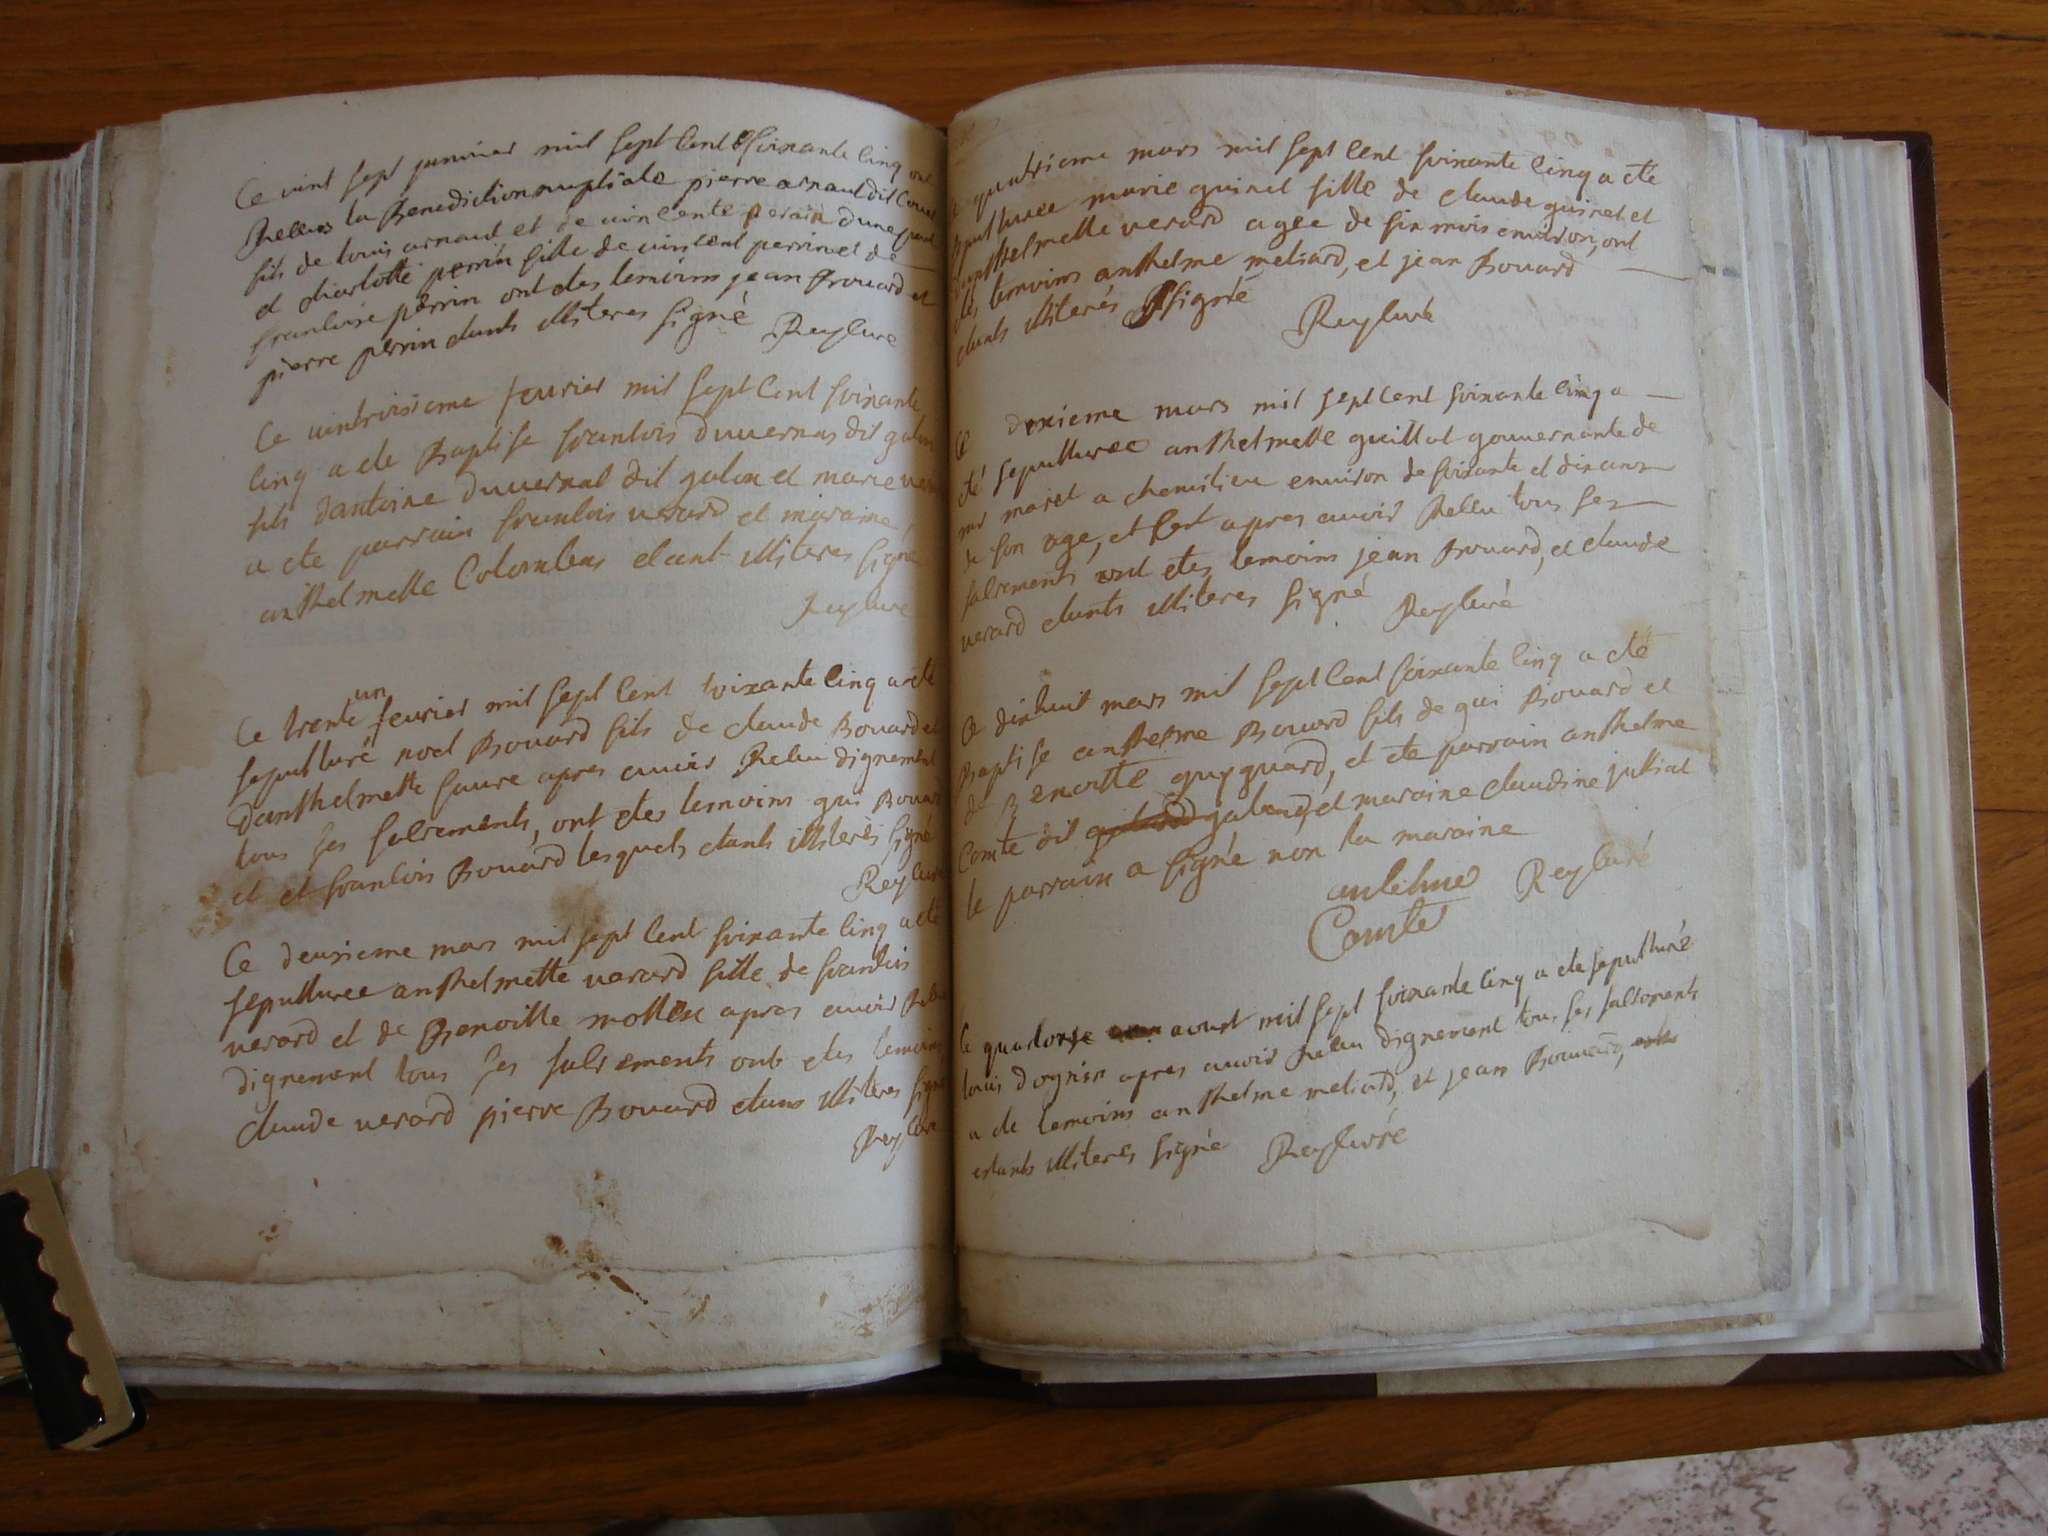 Ce vint sept janvier mil sept cent soixante cinq ont
Recluos la Benediction nuptiale pierre arnaud dit
fils de louis arnaud et de vincente perrin dune part
et charlotte perrin fille de vincent perrin et de
francoise perrin ont etes temoins jean Bouard et
pierre perrin etants illiteres signé Rey curé
Ce vintroisieme fevrier mil sept cent soixante
cinq a ete Baptise francois duvernas dit galon
fils dantoine duvernal dit galon et marie
a ete parrain francois verard et maraine
anthelmette Colombas etant illiteres signé
Rey curé
Ce trente un fevrier mil sept cent soixante cinq a eté
sepulturé noel Bouard fils de claude Bouard et
danthelmette favre apres avoir Recu dignement
tous ses sacrements, ont etes temoins gui Bouard
et et francois Bouard lesquels etants illiterés signé
Rey curé
Ce deusieme mars mil sept cent soixante cinq a eté
sepulturee anthelmette verard fille de francois
verard et de Benoitte apres avoir Recu
dignement tous ses sacrements ont etes temoins
claude verard pierre Bouard etans illiteres signé
Rey curé
quatrieme mars mil sept cent soixante cinq a eté
sepulturee marie guinet fille de claude guinet et
danthelmette verard agee de six mois environ, ont
etes temoins anthelme meliard, et jean Bouard
etants illiterés signé Rey curé
Ce dixieme mars mil sept cent soixante cinq a
eté sepulturee anthelmette guillot gouvernante de
mr maret a chemilieu environ de soixante et dix ans
de son age, et cest apres avoir Recu tous ses
sacrements ont etes temoins jean Bouard, et claude
verard etants illiteres signé Rey curé
Ce dixhuit mars mil sept cent soixante cinq a eté
Baptise anthelme Bouard fils de gui Bouard et
de Benoitte guyguard, et ete parrain anthelme
Comte dit galand, et maraine claudine julliat
le parrain a signé non la maraine
antelme Rey curé
Comte
Ce quatorse aoust mil sept soixante cinq a ete sepulturé
louis dognin apres avoir Recu dignement tous ses sacrements
a ete temoins anthelme meliard, et jean Bouard,
estants illiteres signé Rey curé